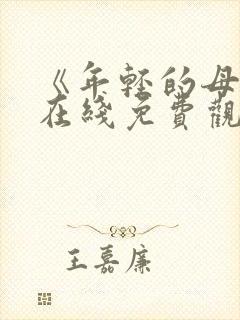 《年轻的母
在綫免費觀
王嘉廉